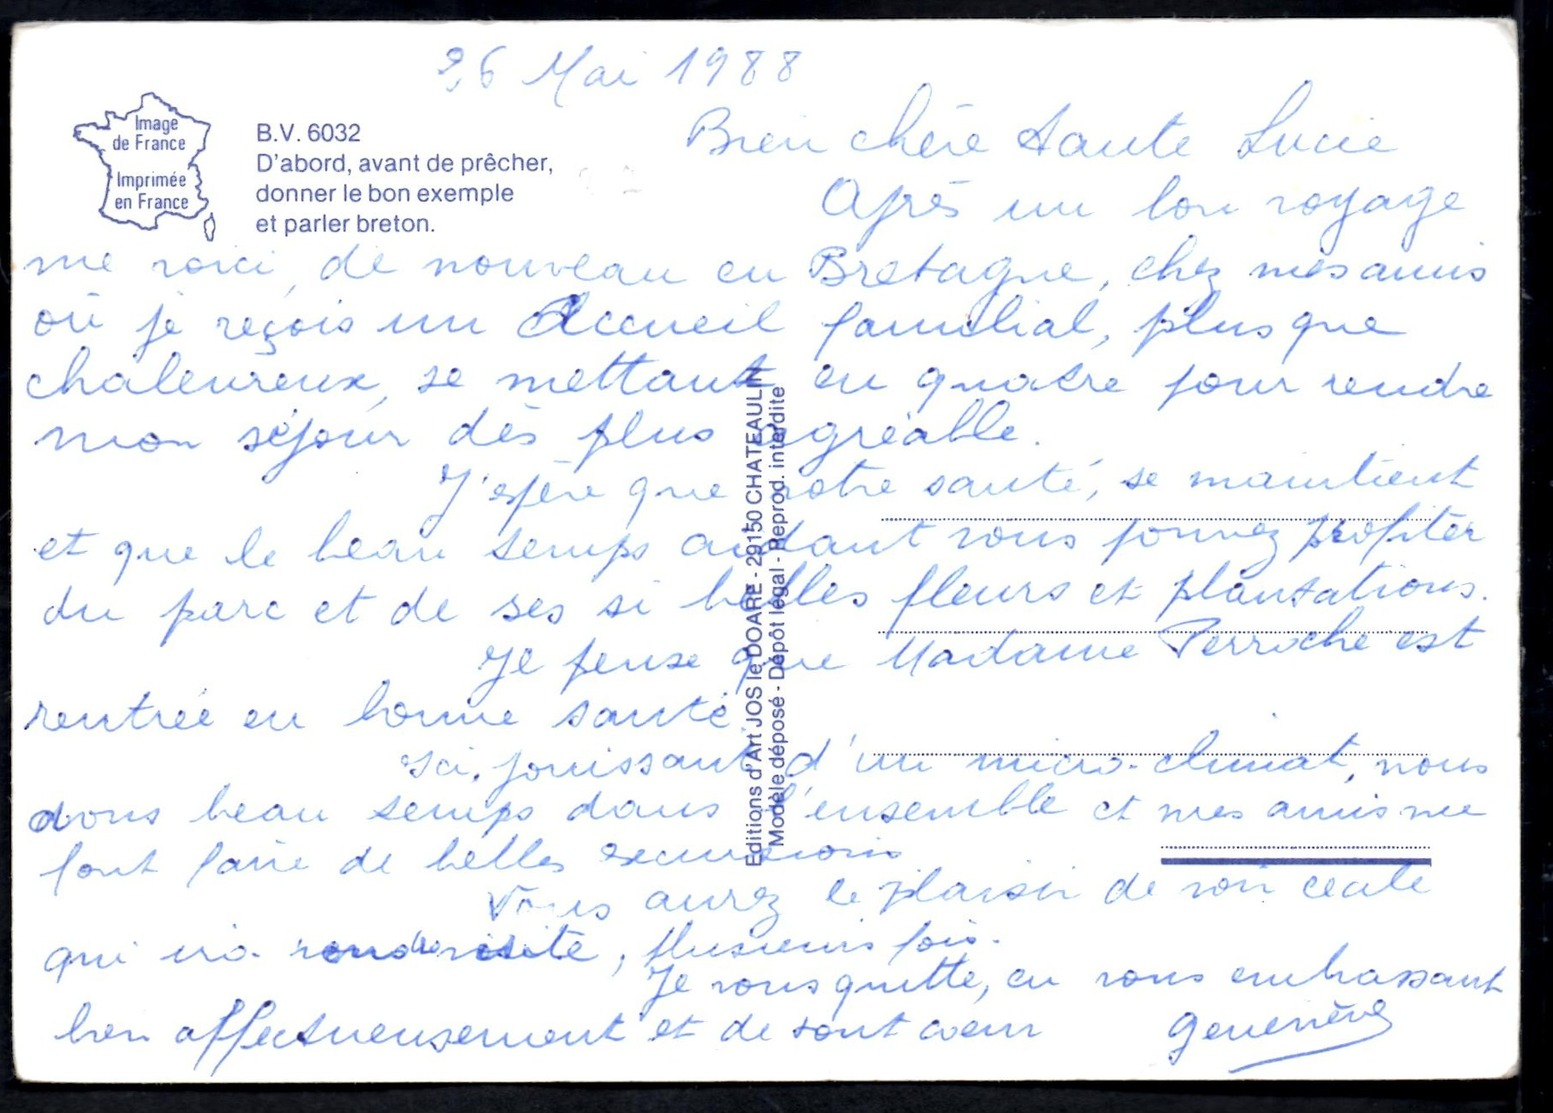 26 Mai 1988
Image
de France
Imprimée
en France
B.V. 6032
D'abord, avant de prêcher,
donner le bon exemple
et parler breton.
Bien chère tante Lucie
Après un bon voyage
me voici, de nouveau en Bretagne, chez mes amis
où je reçois un Accueil familial, plus que
chaleureux, se mettant en quatre pour rendre
mon séjour dès plus agréable.
J'espère que votre santé, se maintient
et que le beau temps aidant vous pouvez profiter
du parc et de ses si belles fleurs et plantations.
Je pense que Madame Perroche est
rentrée en bonne santé
Ici, jouissant d'un micro-climat, nous
avons beau temps dans l'ensemble et mes amis me
font faire de belles excursions
Vous aurez le plaisir de voir
qui ira rendre visite, plusieurs fois.
Je vous quitte, en vous embrassant
bien affectueusement et de tout coeur Geneviève
Editions d'Art JOS le DOARE - 29150 CHATEAULIN
Modèle déposé - Dépôt légal - Reprod. interdite